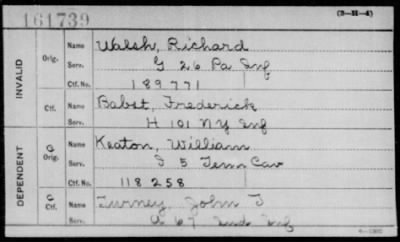 161739
(3-H-4)
INVALID
Orig.
Name Walsh, Richard
Serv. G 26 Pa Inf
Ctf. No. 189771
Ctf.
Name Babst, Frederick
Serv. H 101 NY Inf
DEPENDENT
C
Orig.
Name Keaton, William
Serv. I 5 Tenn Cav
Ctf. No. 118258
C
Ctf.
Name Turney, John T
Serv. A 67 Ind Inf